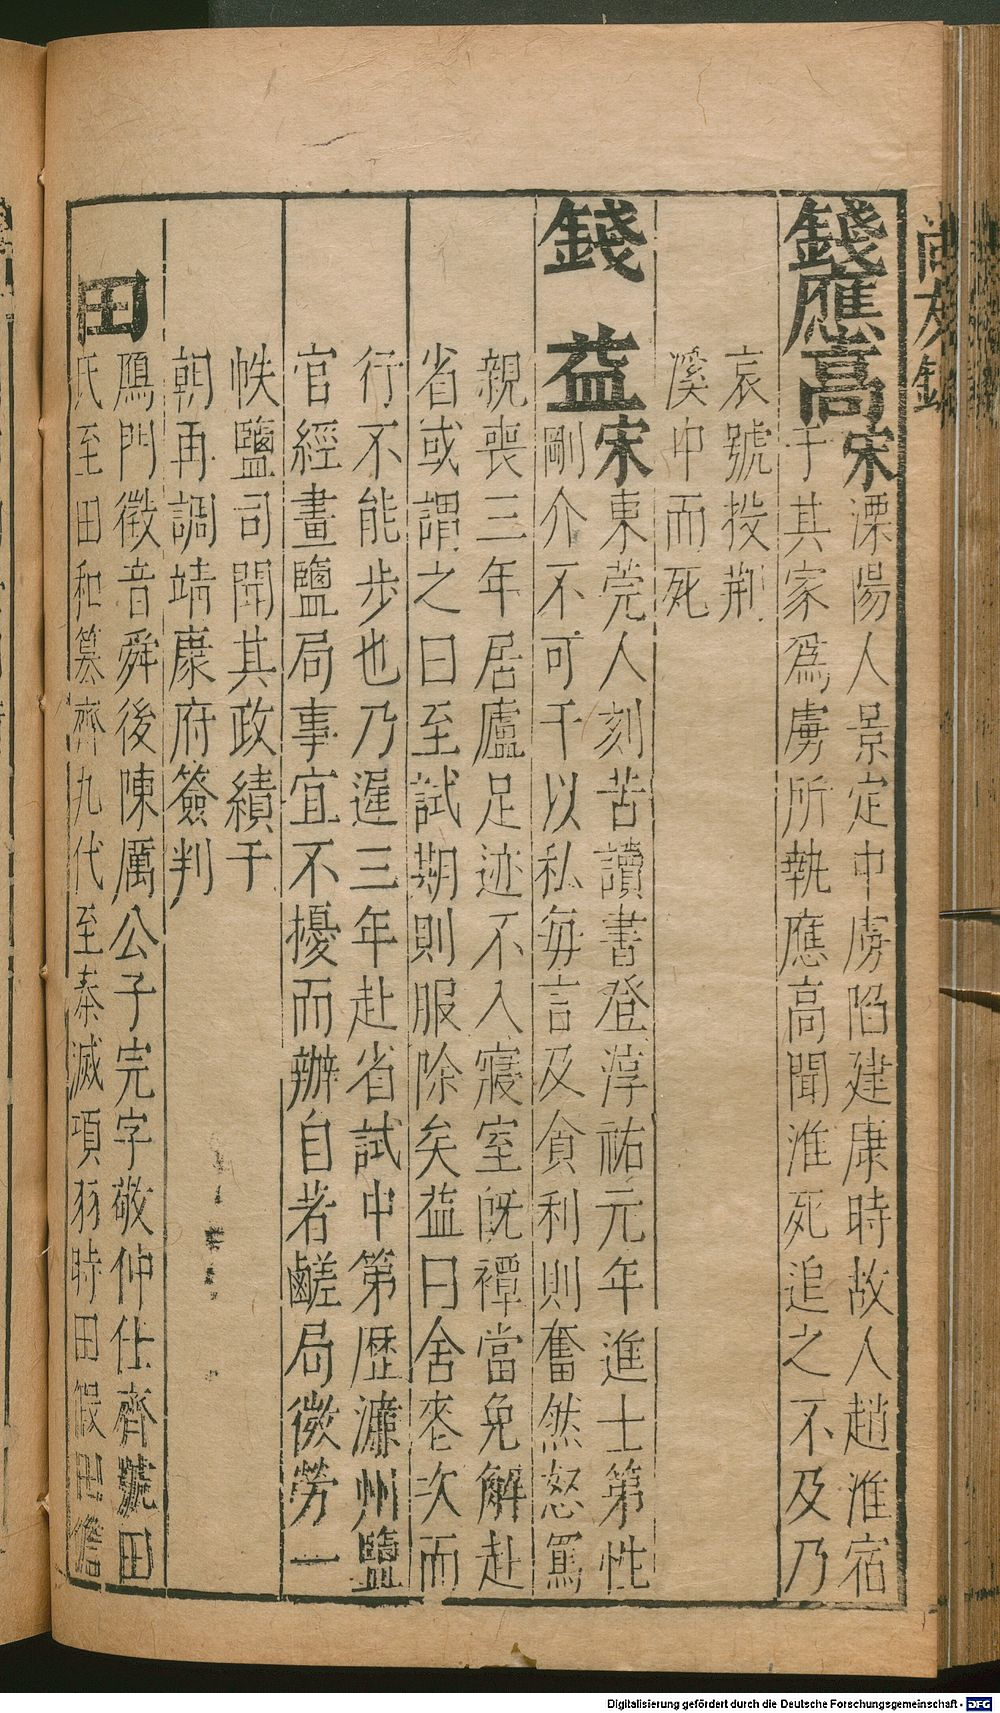 錢應高宋溧陽人景定中虜陷建康時故人趙淮宿
于其家為虜所執應高聞淮死追之不及乃
哀號投荆
溪中而死
錢益宋東莞人刻苦讀書登淳祐元年進士第性
剛介不可干以私每言及貪利則奮然怒罵
親喪三年居廬足迹不入寢室旣禫當免解赴
省或謂之曰至試期則服除矣益曰舍苫次而
行不能步也乃遲三年赴省試中第歷濂州鹽
官經畫鹽局事宜不擾而辦自著鹺局微勞一
帙鹽司聞其政績于
朝再調靖康府簽判
田鴈門徵音舜後陳厲公子完字敬仲仕齊號田
氏至田和篡齊九代至秦滅項羽時田假田儋
尚友錄
Digitalisierung gefördert durch die Deutsche Forschungsgemeinschaft - DFG